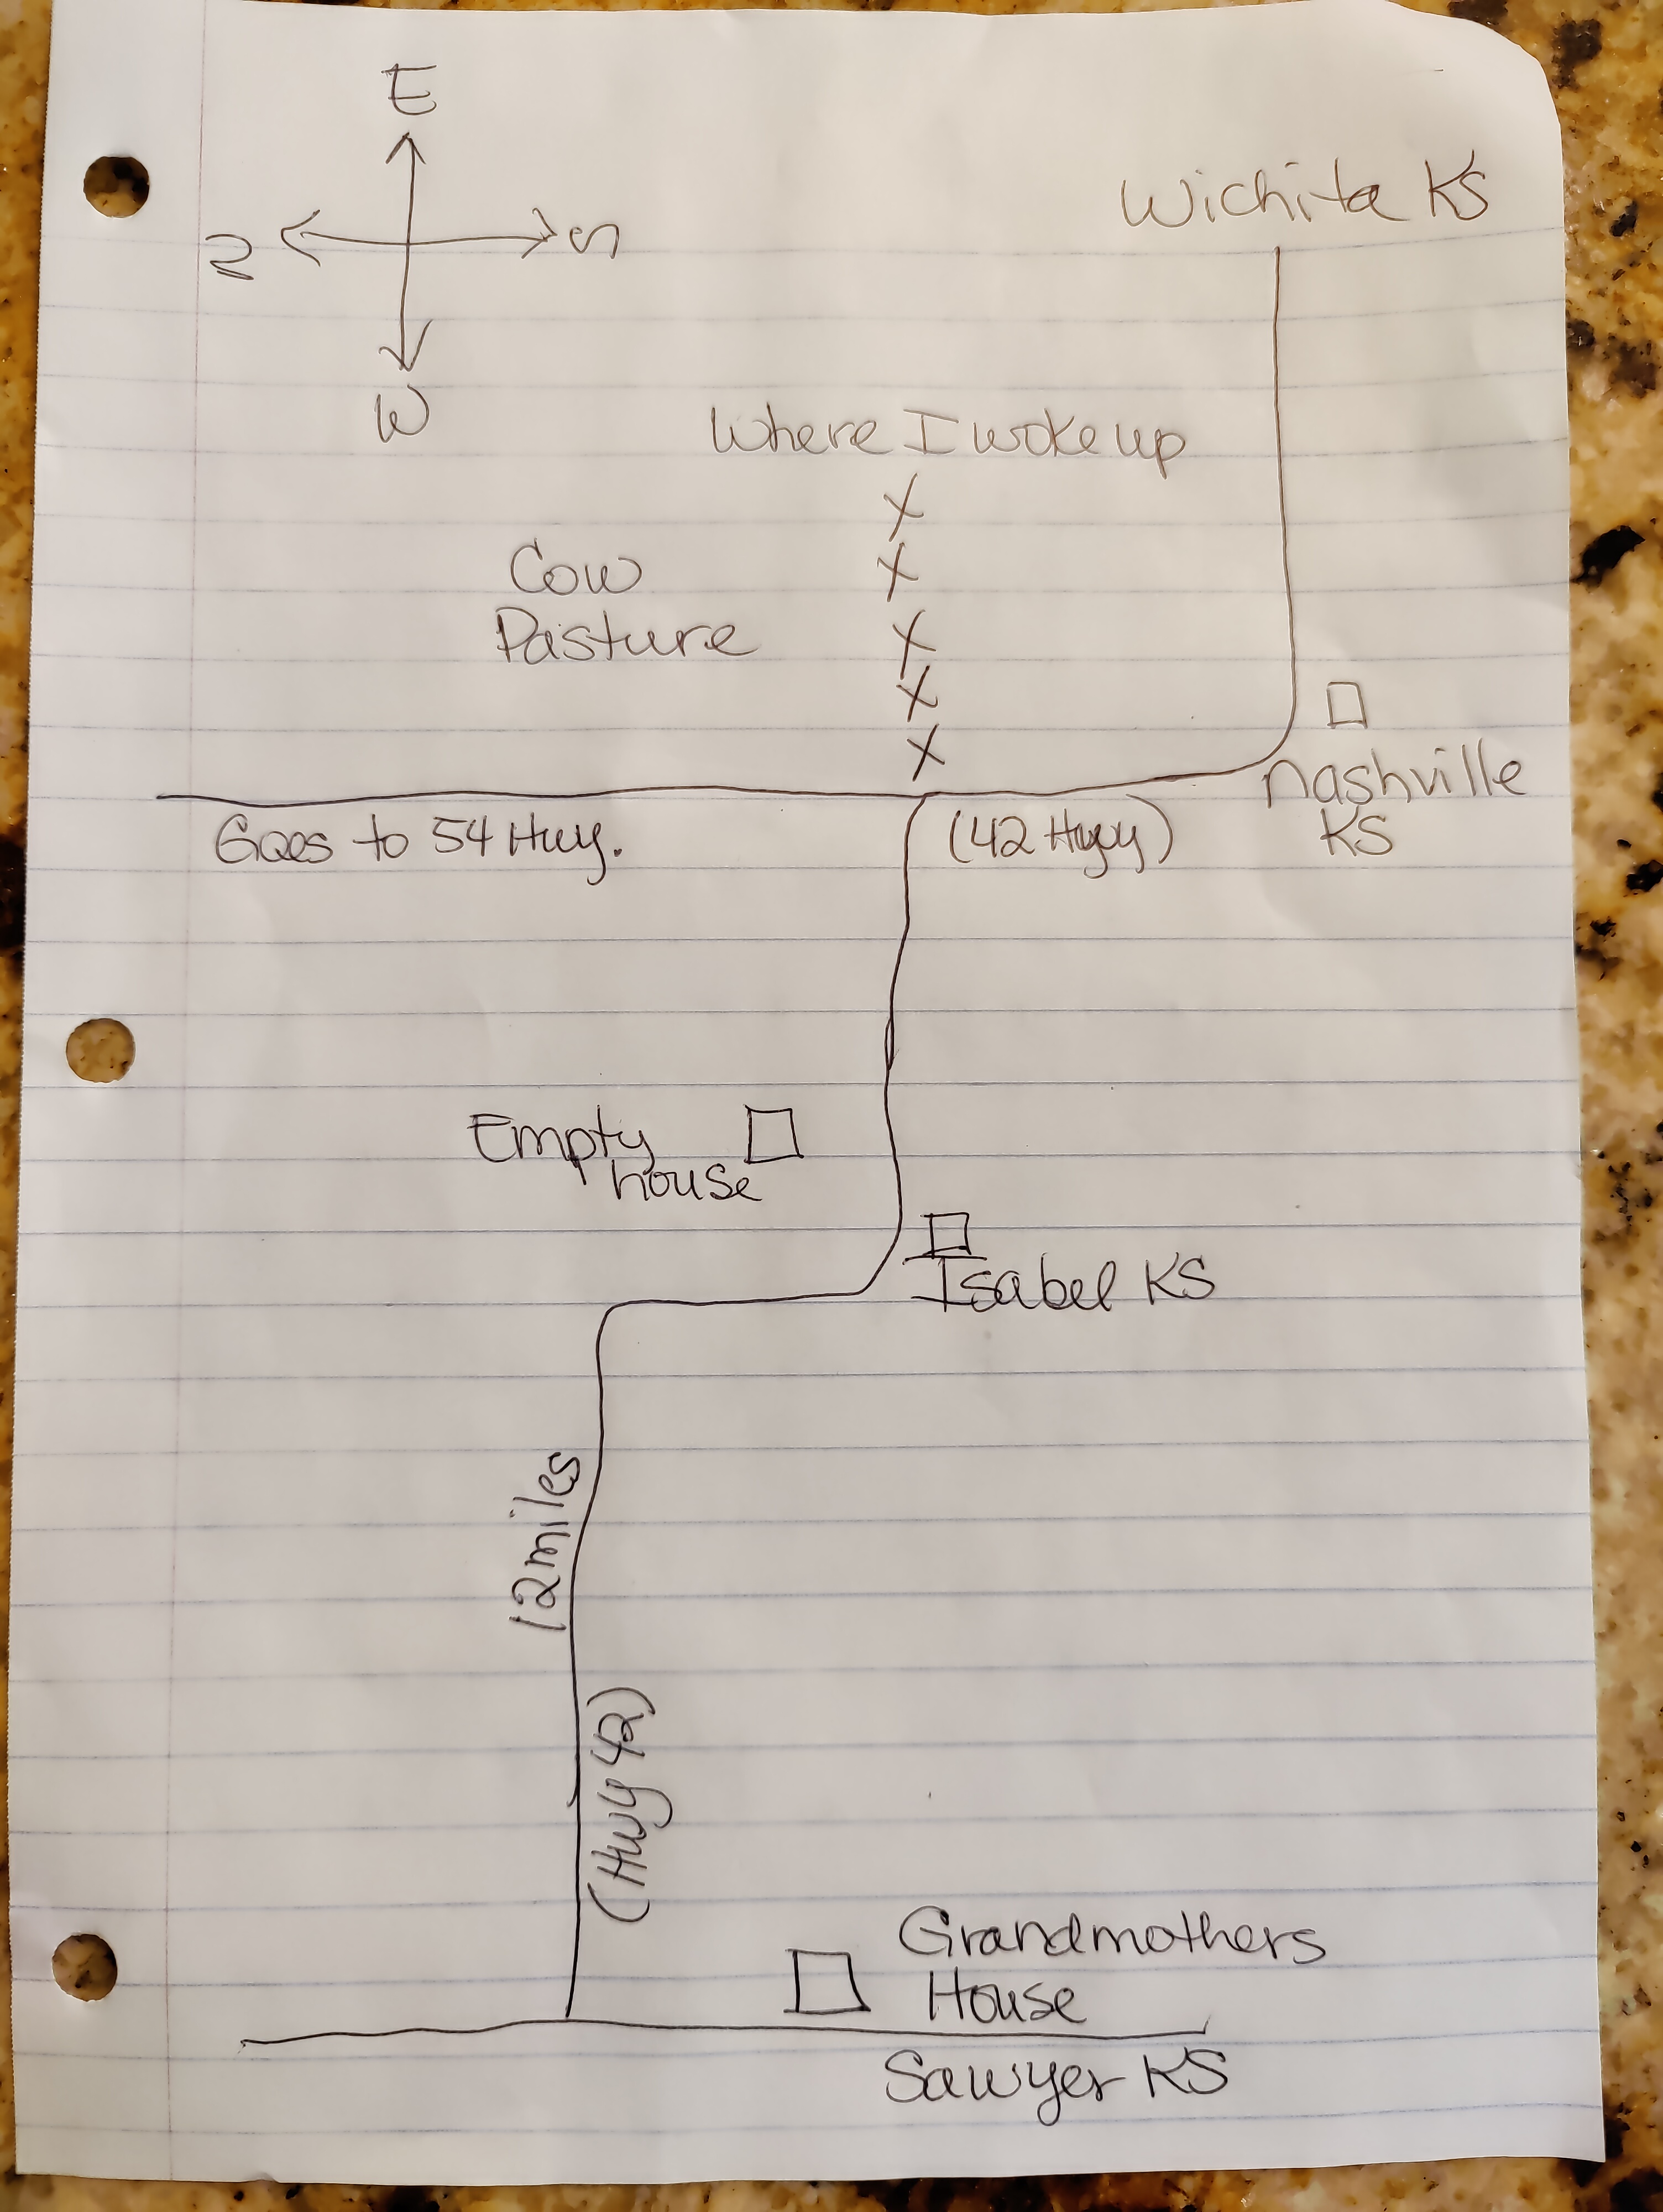 E
N
S
W
Wichita KS
Where I woke up
X
X
X
X
X
Cow
Pasture
Nashville
KS
Goes to 54 Hwy.
(42 Hwy)
Empty
house
Isabel KS
12 miles
(Hwy 42)
Grandmothers
House
Sawyer KS